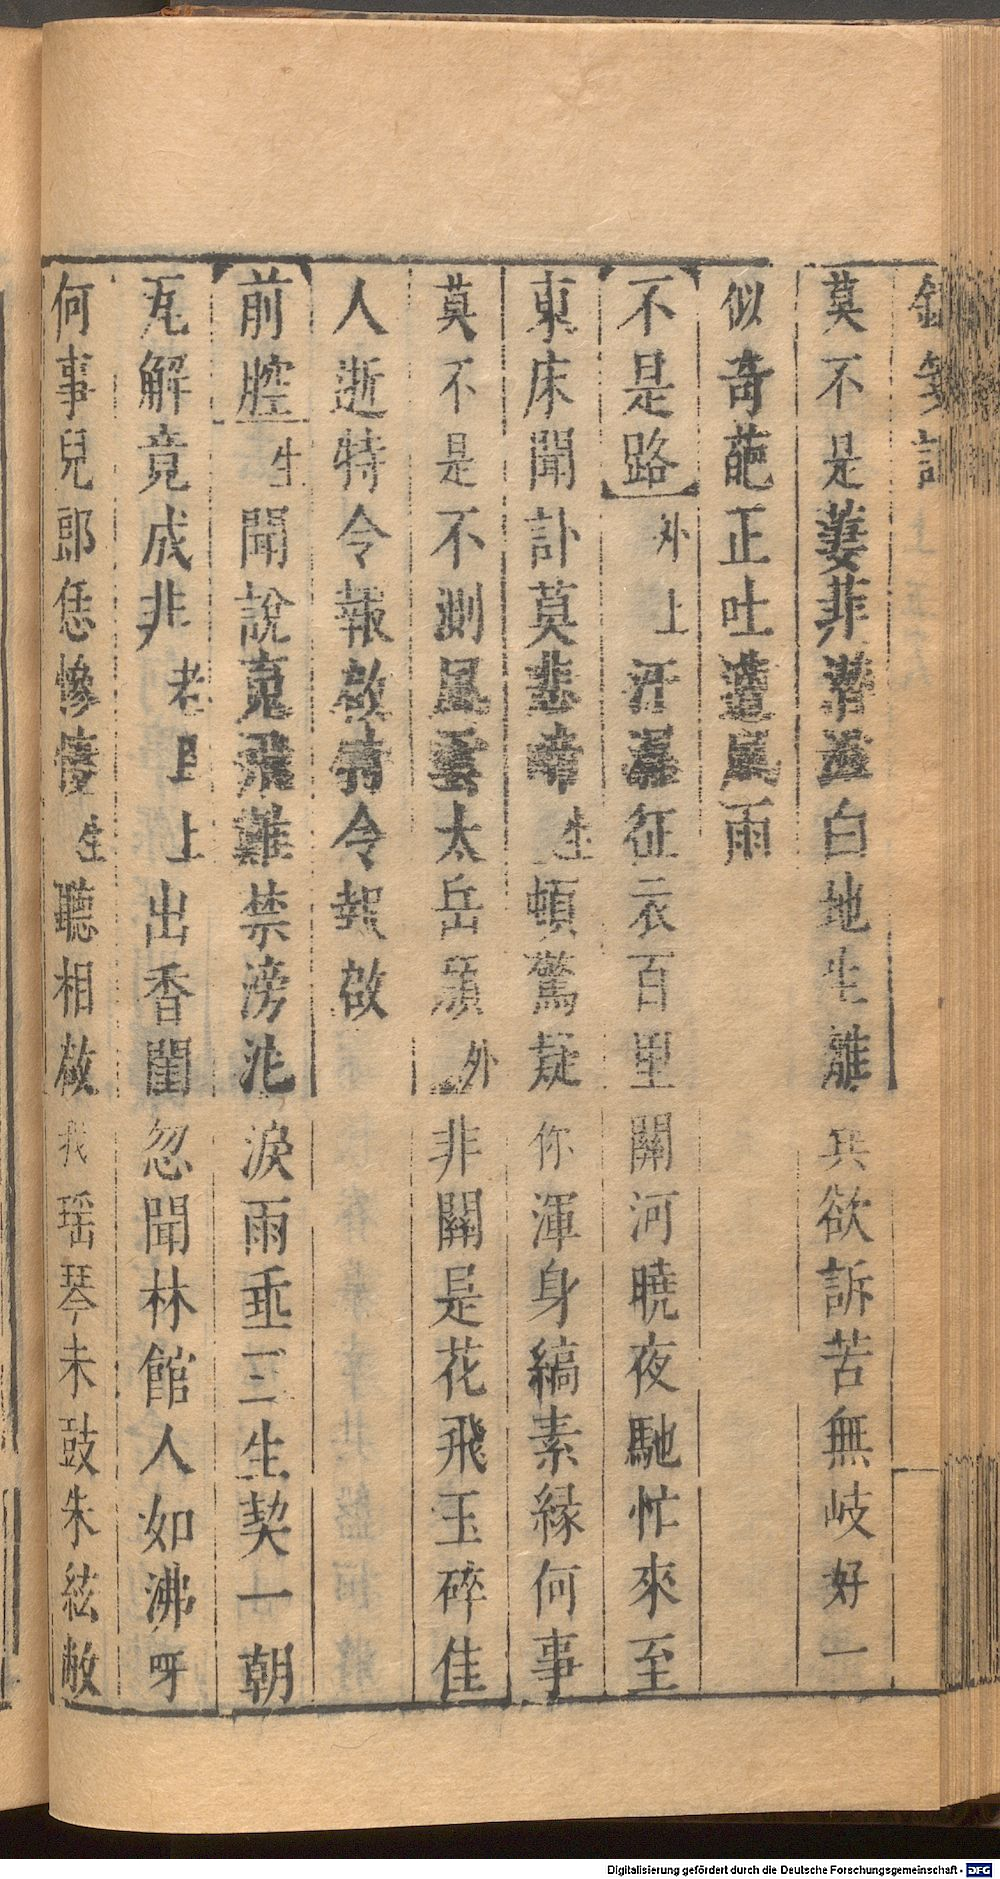 莫不是萋菲潛遊白地生離其欲訴苦無岐好一
似奇葩正吐遭風雨
不是路 外上 汗濕征衣百里關河曉夜馳忙來至
東床聞訃莫悲啼 生 頓驚疑你渾身縞素緣何事
莫不是不測風雲太岳頹 外 非關是花飛玉碎佳
人逝特令報啟特令報啟
前腔 生 聞說魂飛難禁滂沱淚雨垂三生契一朝
瓦解竟成非 老旦上 出香閨忽聞林館人如沸呀
何事兒郎恁慘悽 生 聽相啟我瑶琴未鼓朱絃敝
Digitalisierung gefördert durch die Deutsche Forschungsgemeinschaft - DFG